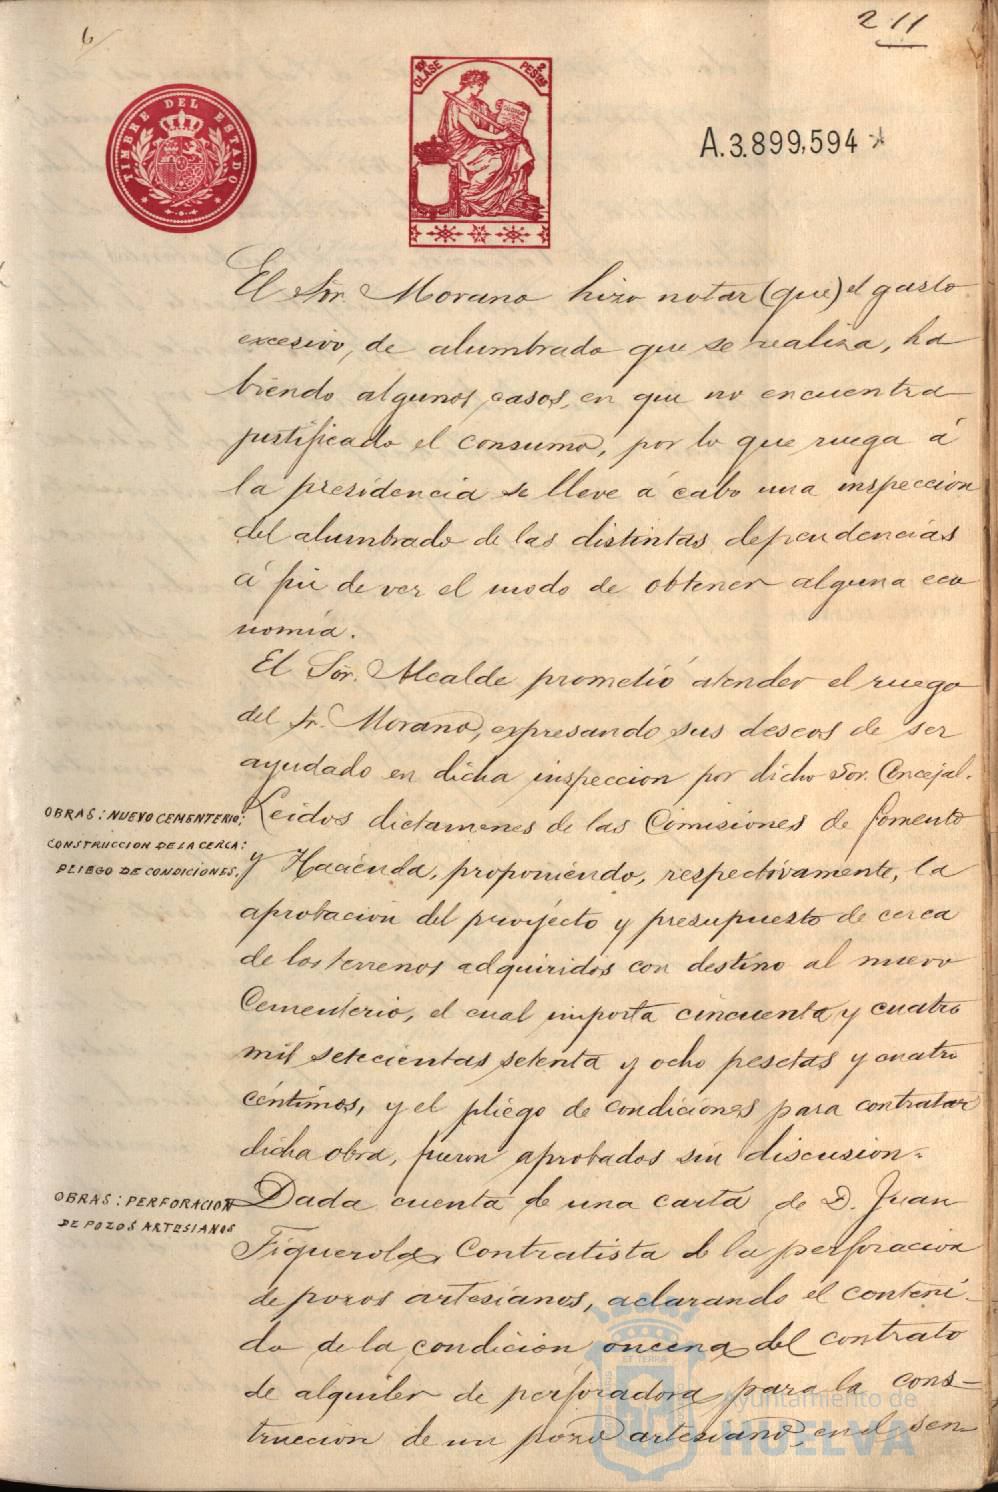 6
211
TIMBRE DEL ESTADO
10ª CLASE
2 PESETAS
A.3.899,594
El Sor. Morano hizo notar (que) el gasto
excesivo, de alumbrado que se realiza, ha
biendo algunos casos, en que no encuentra
justificado el consumo, por lo que ruega á
la presidencia se lleve á cabo una inspeccion
del alumbrado de las distintas dependencias
á fin de ver el modo de obtener alguna eco
nomía.
El Sor. Alcalde prometió atender el ruego
del Sr. Morano, expresando sus deseos de ser
ayudado en dicha inspeccion por dicho Sor. Concejal.
OBRAS: NUEVO CEMENTERIO;
CONSTRUCCION DE LA CERCA:
PLIEGO DE CONDICIONES.
Leidos dictamenes de las Comisiones de fomento
y Hacienda, proponiendo, respectivamente, la
aprobacion del proyecto y presupuesto de cerca
de los terrenos adquiridos con destino al nuevo
Cementerio, el cual importa cincuenta y cuatro
mil setecientas setenta y ocho pesetas y cuatro
céntimos, y el pliego de condiciones para contratar
dicha obra, fueron aprobados sin discusion.
OBRAS: PERFORACION
DE POZOS ARTESIANOS
Dada cuenta de una carta de D. Juan
Figuerola, Contratista de la perforacion
de pozos artesianos, aclarando el conteni-
do de la condicion oncena del contrato
de alquiler de perforadora para la cons-
truccion de un pozo artesiano, en el sen-
Ayuntamiento de
HUELVA